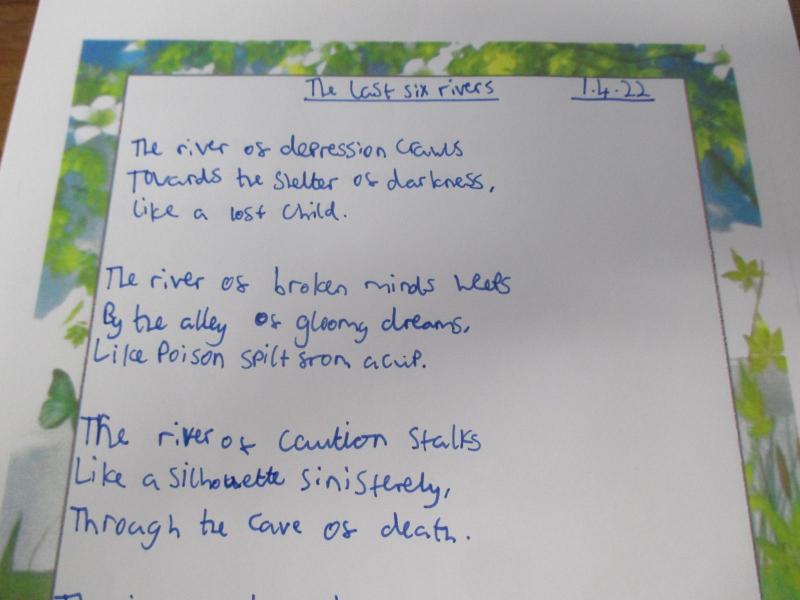 The last six rivers 1.4.22
The river of depression crawls
Towards the shelter of darkness,
Like a lost child.
The river of broken minds weeps
By the alley of gloomy dreams,
Like Poison spilt from a cup.
The river of caution stalks
Like a silhouette sinisterely,
Through the cave of death.